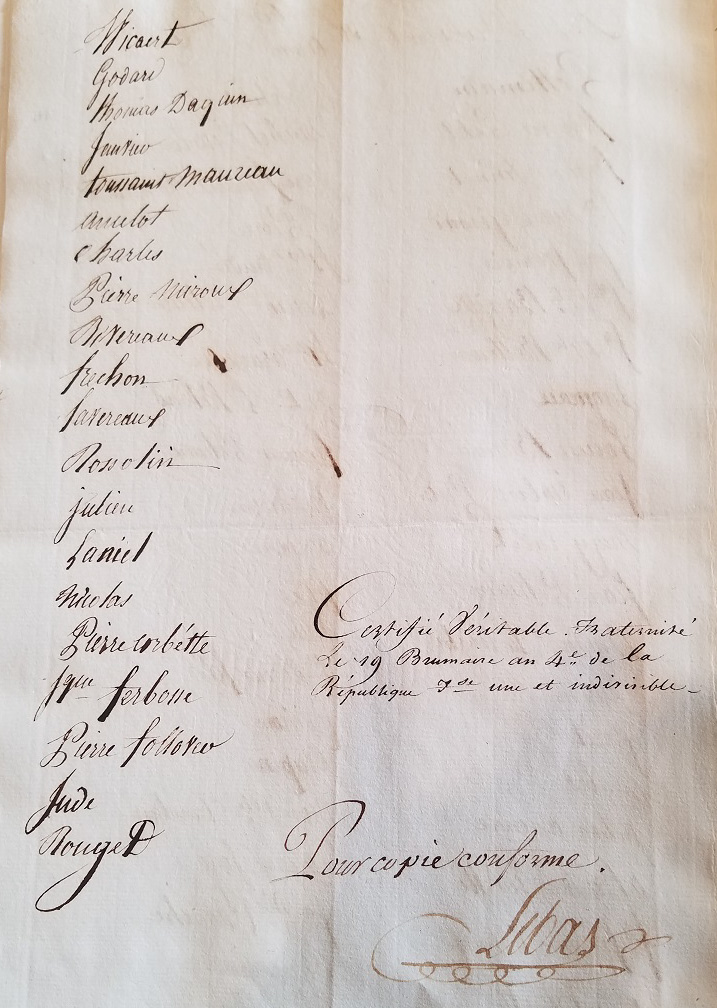 Wicaert
Godard
Thomas Daquin
Janvier
toussaint Mauzeau
amelot
Charles
Pierre Miroux
Devereaux
frechon
favereaux
Rossolin
julien
Laniel
Nicolas
Pierre corbétte
Jqme ferbosse
Pierre follower
Jude
Rouget
Certifié Véritable. Fraternité
Le 19 Brumaire an 4e. de la
République fse une et indivisible
Pour copie conforme.
Lebas